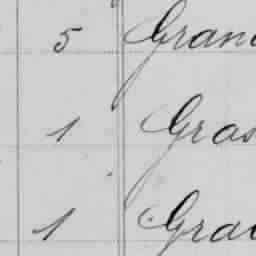 5 Gran
1 Gras
1 Gra